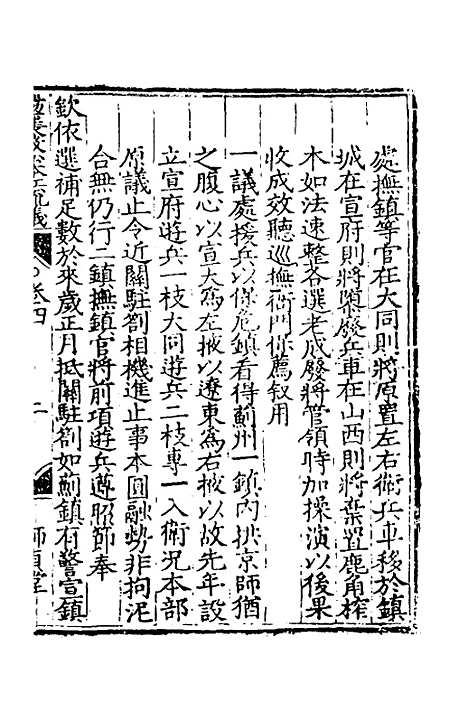 處撫鎮等官在大同則將原置左右衛兵車移於鎮
城在宣府則將隳廢兵車在山西則將棄置鹿角榨
木如法速整各選老成廢將管領時加操演以後果
收成效聽巡撫衙門作薦叙用
一議處援兵以保危鎮看得薊州一鎮內拱京師猶
之腹心以宣大為左掖以遼東為右掖以故先年設
立宣府遊兵一枝大同遊兵二枝專一入衛況本部
原議止令近關駐劄相機進止事本圓融勢非拘泥
合無仍行二鎮撫鎮官將前項遊兵遵照節奉
欽依選補足數於來歲正月抵關駐劄如薊鎮有警宣鎮
卷四
二